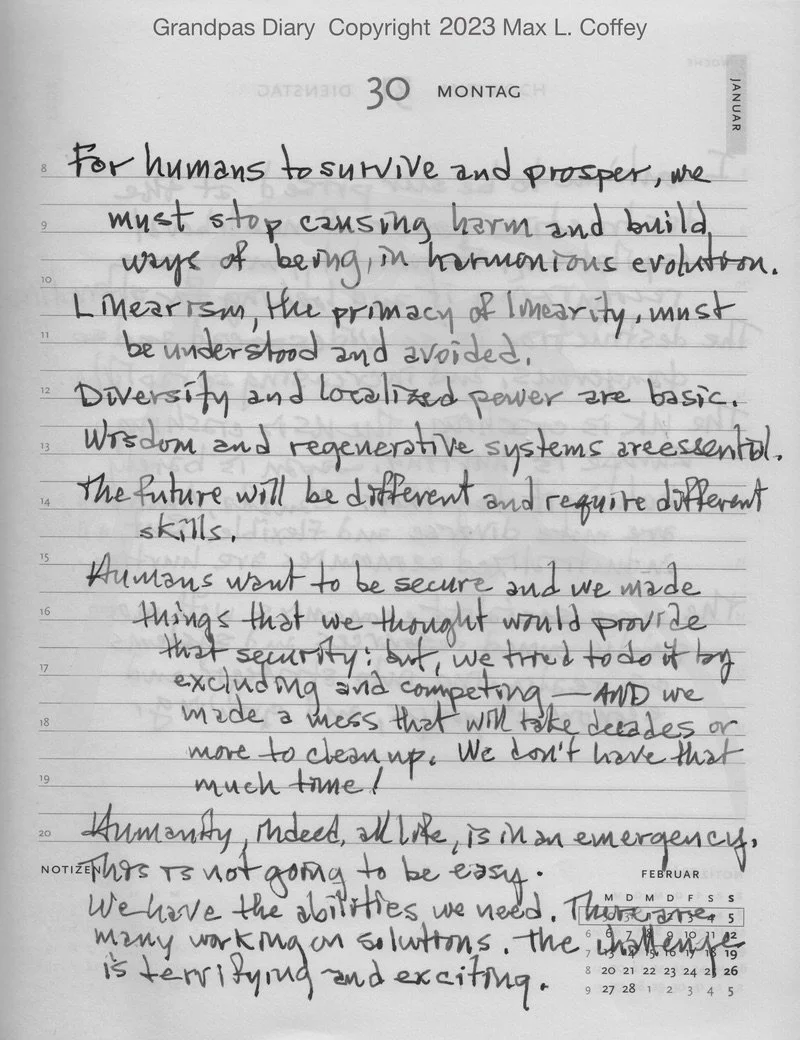 Grandpas Diary Copyright 2023 Max L. Coffey
30 MONTAG
JANUAR
8 For humans to survive and prosper, we
9 must stop causing harm and build
ways of being, in harmonious evolution.
10
Linearism, the primacy of linearity, must
11 be understood and avoided.
12 Diversity and localized power are basic.
13 Wisdom and regenerative systems are essential.
14 The future will be different and require different
skills.
15
Humans want to be secure and we made
16 things that we thought would provide
that security: but, we tried to do it by
17 excluding and competing — AND we
18 made a mess that will take decades or
more to clean up. We don't have that
19 much time!
20 Humanity, indeed, all life, is in an emergency.
NOTIZEN This is not going to be easy.
FEBRUAR
M D M D F S S
We have the abilities we need. There are
3 4 5
many working on solutions. The challenge
6 6 7 8 9 10 11 12
is terrifying and exciting.
7 13 14 15 16 17 18 19
8 20 21 22 23 24 25 26
9 27 28 1 2 3 4 5